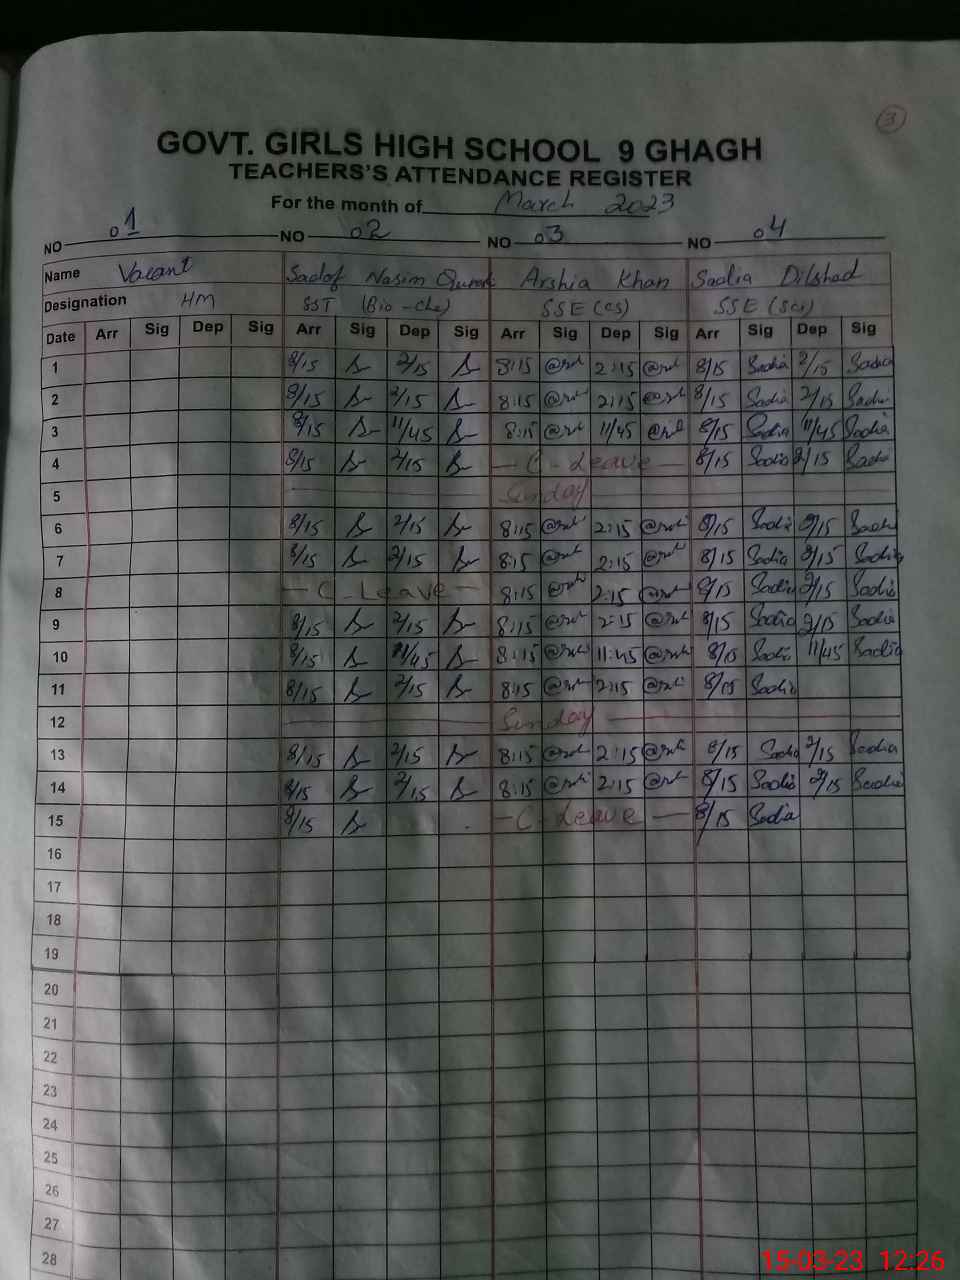 3
GOVT. GIRLS HIGH SCHOOL 9 GHAGH
TEACHERS'S ATTENDANCE REGISTER
For the month of March 2023
NO 01 NO 02 NO 03 NO 04
Name Vacant Sadaf Nasim Arshia Khan Saadia Dilshad
Designation HM SST (Bio-Che) SSE (CS) SSE (Sci)
Date Arr Sig Dep Sig Arr Sig Dep Sig Arr Sig Dep Sig Arr Sig Dep Sig
1 8/15 2/15 8:15 2:15 8/15 Saadia 2/15 Saadia
2 8/15 2/15 8:15 2:15 8/15 Saadia 2/15 Saadia
3 8/15 11/45 8:15 11/45 8/15 Saadia 11/45 Saadia
4 8/15 2/15 C-Leave 8/15 Saadia 2/15 Saadia
5 Sunday
6 8/15 2/15 8:15 2:15 8/15 Saadia 2/15 Saadia
7 8/15 2/15 8:15 2:15 8/15 Saadia 2/15 Saadia
8 C-Leave 8:15 2:15 8/15 Saadia 2/15 Saadia
9 8/15 2/15 8:15 2:15 8/15 Saadia 2/15 Saadia
10 8/15 11/45 8:15 11:45 8/15 Saadia 11/45 Saadia
11 8/15 2/15 8:15 2:15 8/15 Saadia
12 Sunday
13 8/15 2/15 8:15 2:15 8/15 Saadia 2/15 Saadia
14 8/15 2/15 8:15 2:15 8/15 Saadia 2/15 Saadia
15 8/15 C-Leave 8/15 Saadia
16
17
18
19
20
21
22
23
24
25
26
27
28
15-03-23 12:26